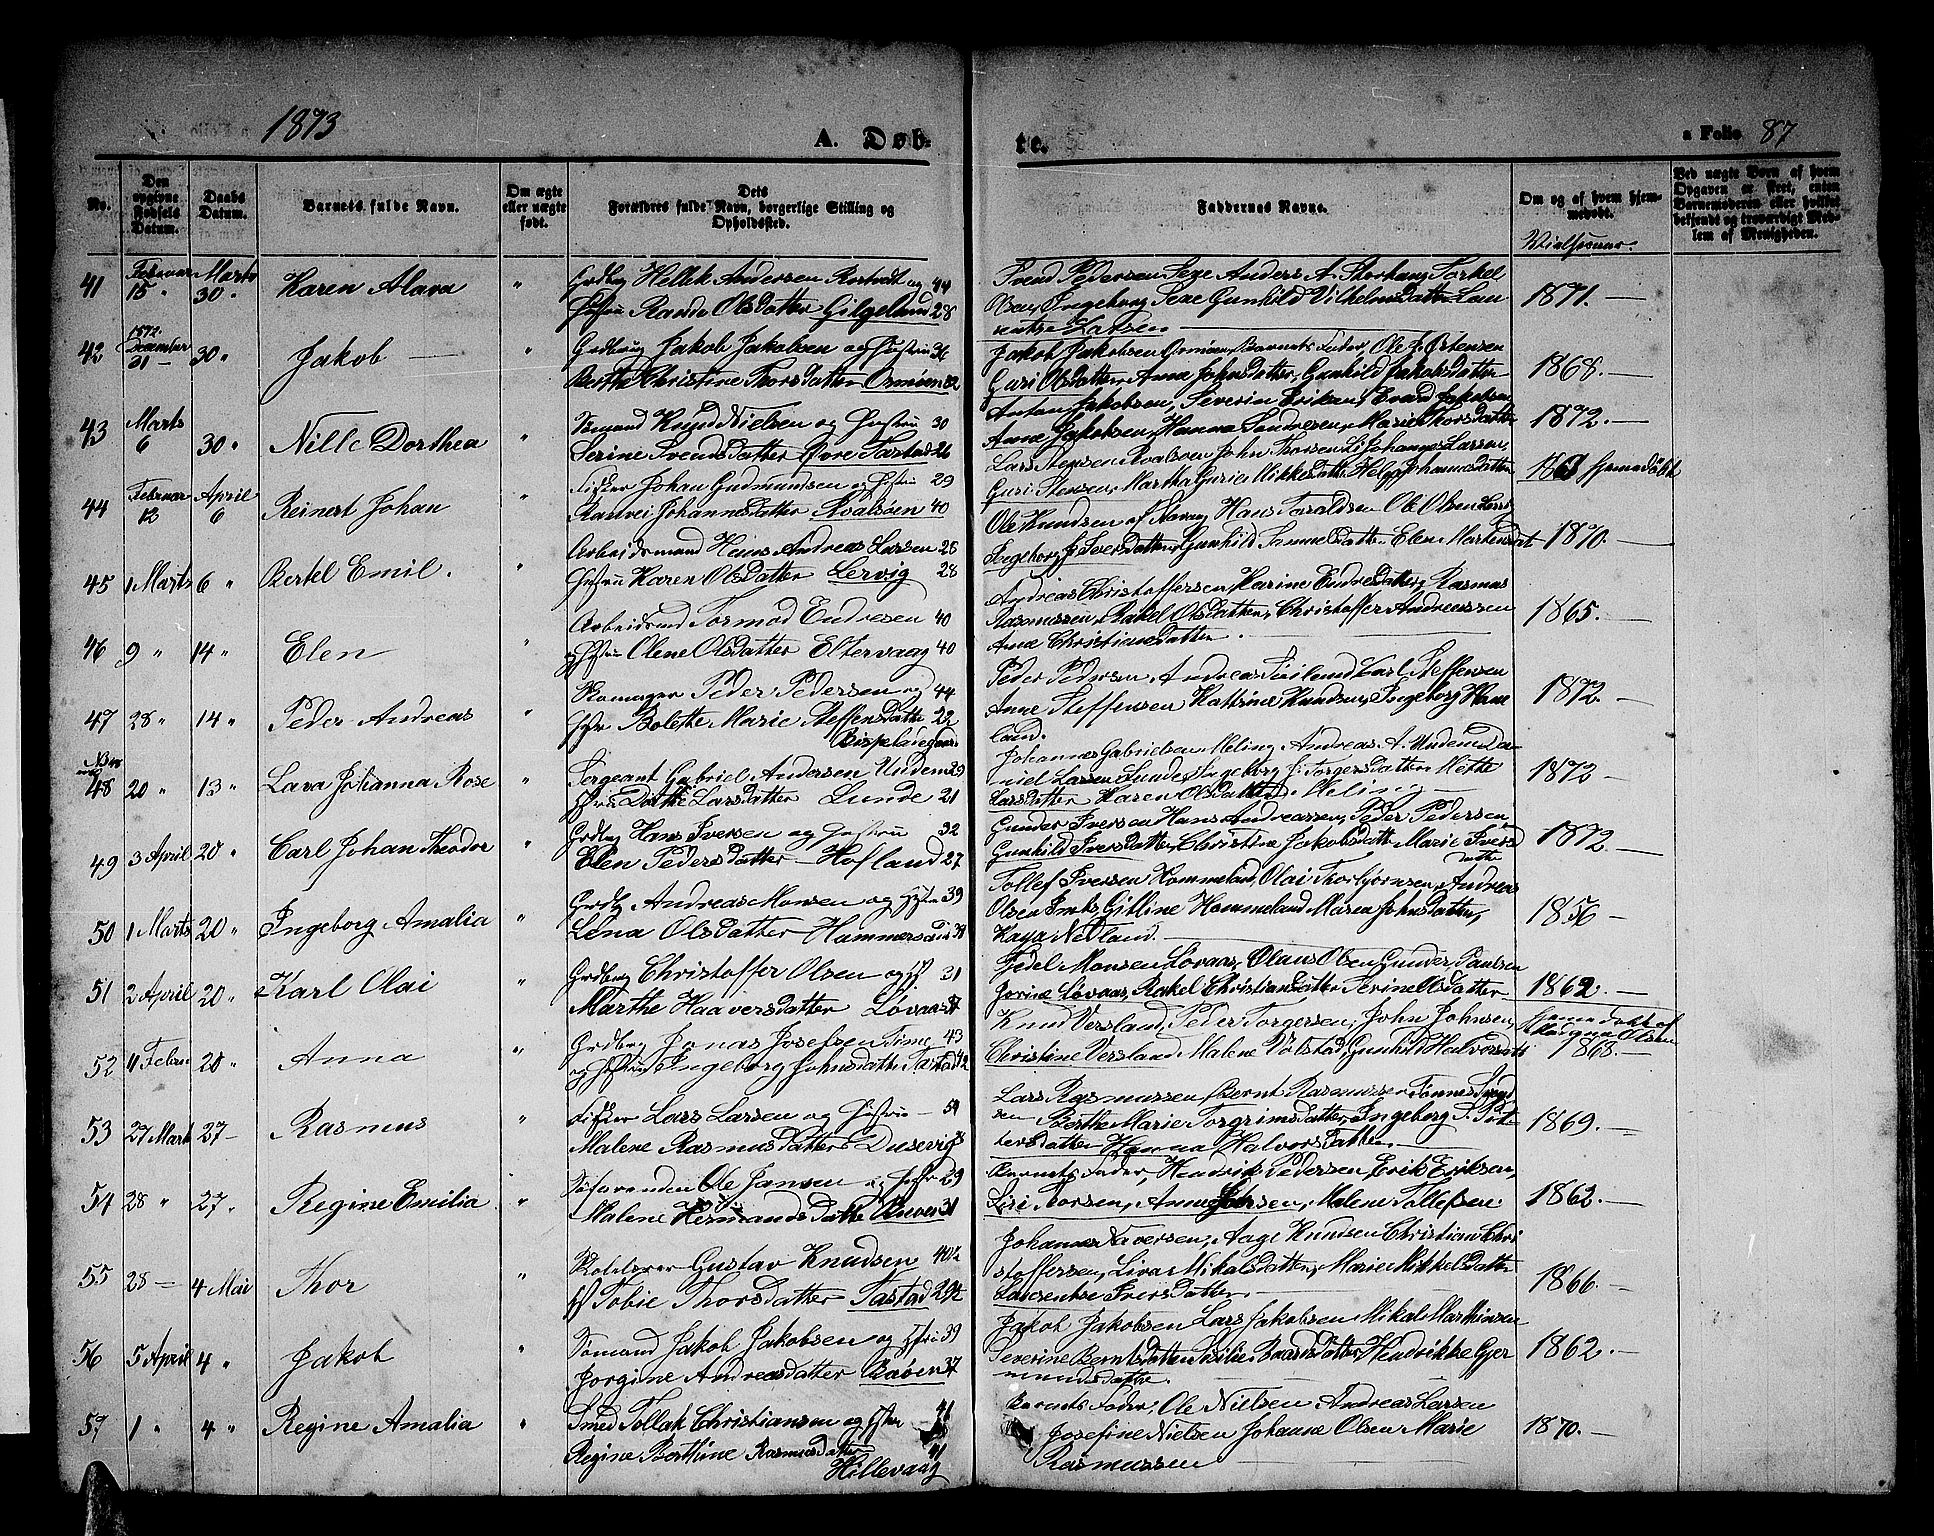 1873
A. Døb-
te.
a Folio 87
No.
Den opgivne Fødsels Datum.
Daabs Datum.
Barnets fulde Navn.
Om ægte eller uægte født.
Dets Forældres fulde Navn, borgerlige Stilling og Opholdssted.
Faddernes Navne.
Om og af hvem hjemmedøbt.
Vielsesaar.
Ved uægte Børn af hvem Opgaven er skeet, enten Barnemoderen eller hvilket bekjendt og troværdigt Medlem af Menigheden.
41 Februar 15 " Marts 30 " Karen "
Grdbg Hellik Andersen og 44
Hustru Olsdatter 28
Svend Pedersen Anders A. Storhaug Torkel
Olsen, Ingeborg Gunhild Vilhelmsdatter Lau-
rentse Larsen
1871. —
42 1872 December 31 — 30 " Jakob — "
Grdbrug Jakob Jakobsen og Hustru 36
Berthe Christine Thorsdatter 32
Jakob Jakobsen Barnets Fader, Ole
Guri Olsdatter, Anna Johnsdatter, Gunhild Jakobsdatter
1868. —
43 Marts 6 30 " Nille Dorthea "
Sømand Knud Nielsen og Hustru 30
Serine Svendsdatter Øvre Tastad 26
Anton Jakobsen, Severin Eriksen, Jakobsen
Anne Jakobsen, Hanna Marie Thorsdatter
1872. —
44 Februar 12 April 6 Reinert Johan "
Fisker Johan Gudmundsen og Hstru 29
Johannesdatter Roalsøen 40
Lars Stensen Roalsøen John Thorsen Johannes Larsen
Guri Stensen, Martha Gurie Mikkelsdatter Johannesdatter
hjemmedøbt
45 1 Marts 6 " Bertel Emil. "
Arbeidsmand Hans Andreas Larsen 28
Hustru Karen Olsdatter Lervig 28
Ole Knudsen Hans Ole Olsen Lervig
Ingeborg J. Iversdatter, Gunhild Samuelsdatter Elen Martensdat
1870. —
46 9 " 14 " Elen "
Arbeidsmd Tormod Endresen 40
og Hstru Olene Olsdatter Eltervaag 40
Andreas Christoffersen, Karine Endresdatter, Rasmus
Rasmussen, Rakel Olsdatter, Christoffer Andreassen
Ane Christiansdatter
1865. —
47 28 " 14 " Peder Andreas "
Peder Pedersen og 44
Bolette Marie Steffensdatte 22
Peder Pedersen, Andreas Carl Steffensen
Anne Steffensen Kattrine Knudsen, Ingeborg Haae
land.
1872. —
48 20 " 13 " Lava Johanna Rose "
Sergeant Gabriel Andersen Undem 29
Hstru Dorthe Larsdatter Lunde 21
Johannes Gabrielsen Meling Andreas A. Undem Da-
niel Larsen Lunde, Ingeborg J. Torgersdatter Mette
Larsdatter Karen Olsdatter Meling
1872 —
49 3 April 20 " Carl Johan Theodor "
Grdbg Hans Iversen og Hustru 32
Elen Pedersdatter — Hofland 27
Gunder Iversen Hans Andreassen, Peder Pedersen
Gunhild Iversdatter, Christine Jakobsdatt Marie Ivers
datte
1872. —
50 1 Marts 20 " Ingeborg Amalia "
Grdbg Andreas Monsen og 39
Lena Olsdatter
Tollef Iversen Hommeland, Olai Thorbjørnsen, Andreas
Olsen Gitline Hommeland Maren Johnsdatter,
Kaya Nedland.
1856 —
51 2 April 20 " Karl Olai "
Grdbrug Christoffer Olsen og Hst 31
Marthe Haaversdatter Løvaas
Fjedel Monsen Løvaas, Olaus Olsen Gunder Paulsen
Jorine Løvaas, Rakel Christiansdatter Serine Olsdatter
1862 —
52 4 Febru 20 " Anna "
Grdbrg Jonas Josefsen Time 43
og Hstru Ingeborg Johnsdatte Tastad 42
Knud Versland, Peder Torgersen, John Johnsen,
Christine Versland Malene Vølstad, Gunhild Halvorsdt
hjemmedøbt af
Olsen
1868. —
53 27 Mart 27 — Rasmus "
Fisker Lars Larsen og Hustru — 54
Malene Rasmusdatter Dusevig
Lars Rasmussen, Bernt Rasmussen Tønnes
Berthe Marie Torgrimsdatter, Ingeborg T. Pet-
tersdatter Hanna Halvorsdatter
1869. —
54 28 " 27 " Regine Emilia "
Søfarenden Ole Jansen og Hstr 29
Malene Hermandsdatte 31
Barnets Fader, Hendrik Pedersen Erik Eriksen,
Siri Torsen, Anne Malene Tollefsen
1862. —
55 28 — 4 Mai Thor "
Gustav Knudsen 40½
Tobie Thorsdatter Tastad 29½
Johannes Aage Knudsen Christian Chri
stoffersen, Lisa Mikalsdatter, Marie Mikkelsdatter
Laurentse Iversdatter
1866. —
56 5 April 4 " Jakob "
Sømand Jakob Jakobsen og Hstru 39
Jorgine Andreasdatter Bøøen 37
Jakob Jakobsen Lars Jakobsen Mikal Marthinsen
Severine Berntsdatter Baardsdatter Hendrikke Gjer
mundsdatte.
1862. —
57 1 " 4 " Regine Amalia "
Smed Tollak Christiansen og Hstru 41
Regine Berthine Rasmusdatter 41
Hillevaag
Barnets Fader, Ole Nielsen Andreas Larsen
Josefine Nielsen Johanne Olsen Marie
Rasmussen
1870. —